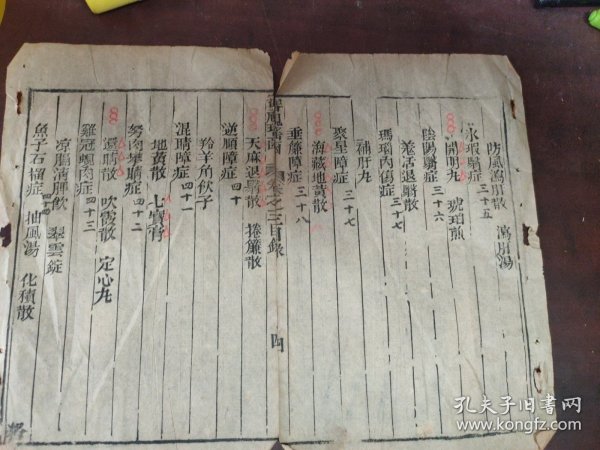 防風瀉肝散 瀉肝湯
氷瑕翳症 三十五
開明丸 琥珀煎
陰陽翳症 三十六
羗活退翳散
瑪瑙內傷症 三十七
補肝丸
聚星障症 三十七
海藏地黃散
垂簾障症 三十八
卷之三目錄 四
天麻退翳散 捲簾散
逆順障症 四十
羚羊角飲子
混睛障症 四十一
地黃散 七寶膏
努肉攀睛症
還睛散 吹霞散 定心丸
雞冠蜆肉症 四十三
凉膈清脾飲 翠雲錠
魚子石榴症 四十四 抽風湯 化積散
孔夫子旧书网
www.kongfz.com